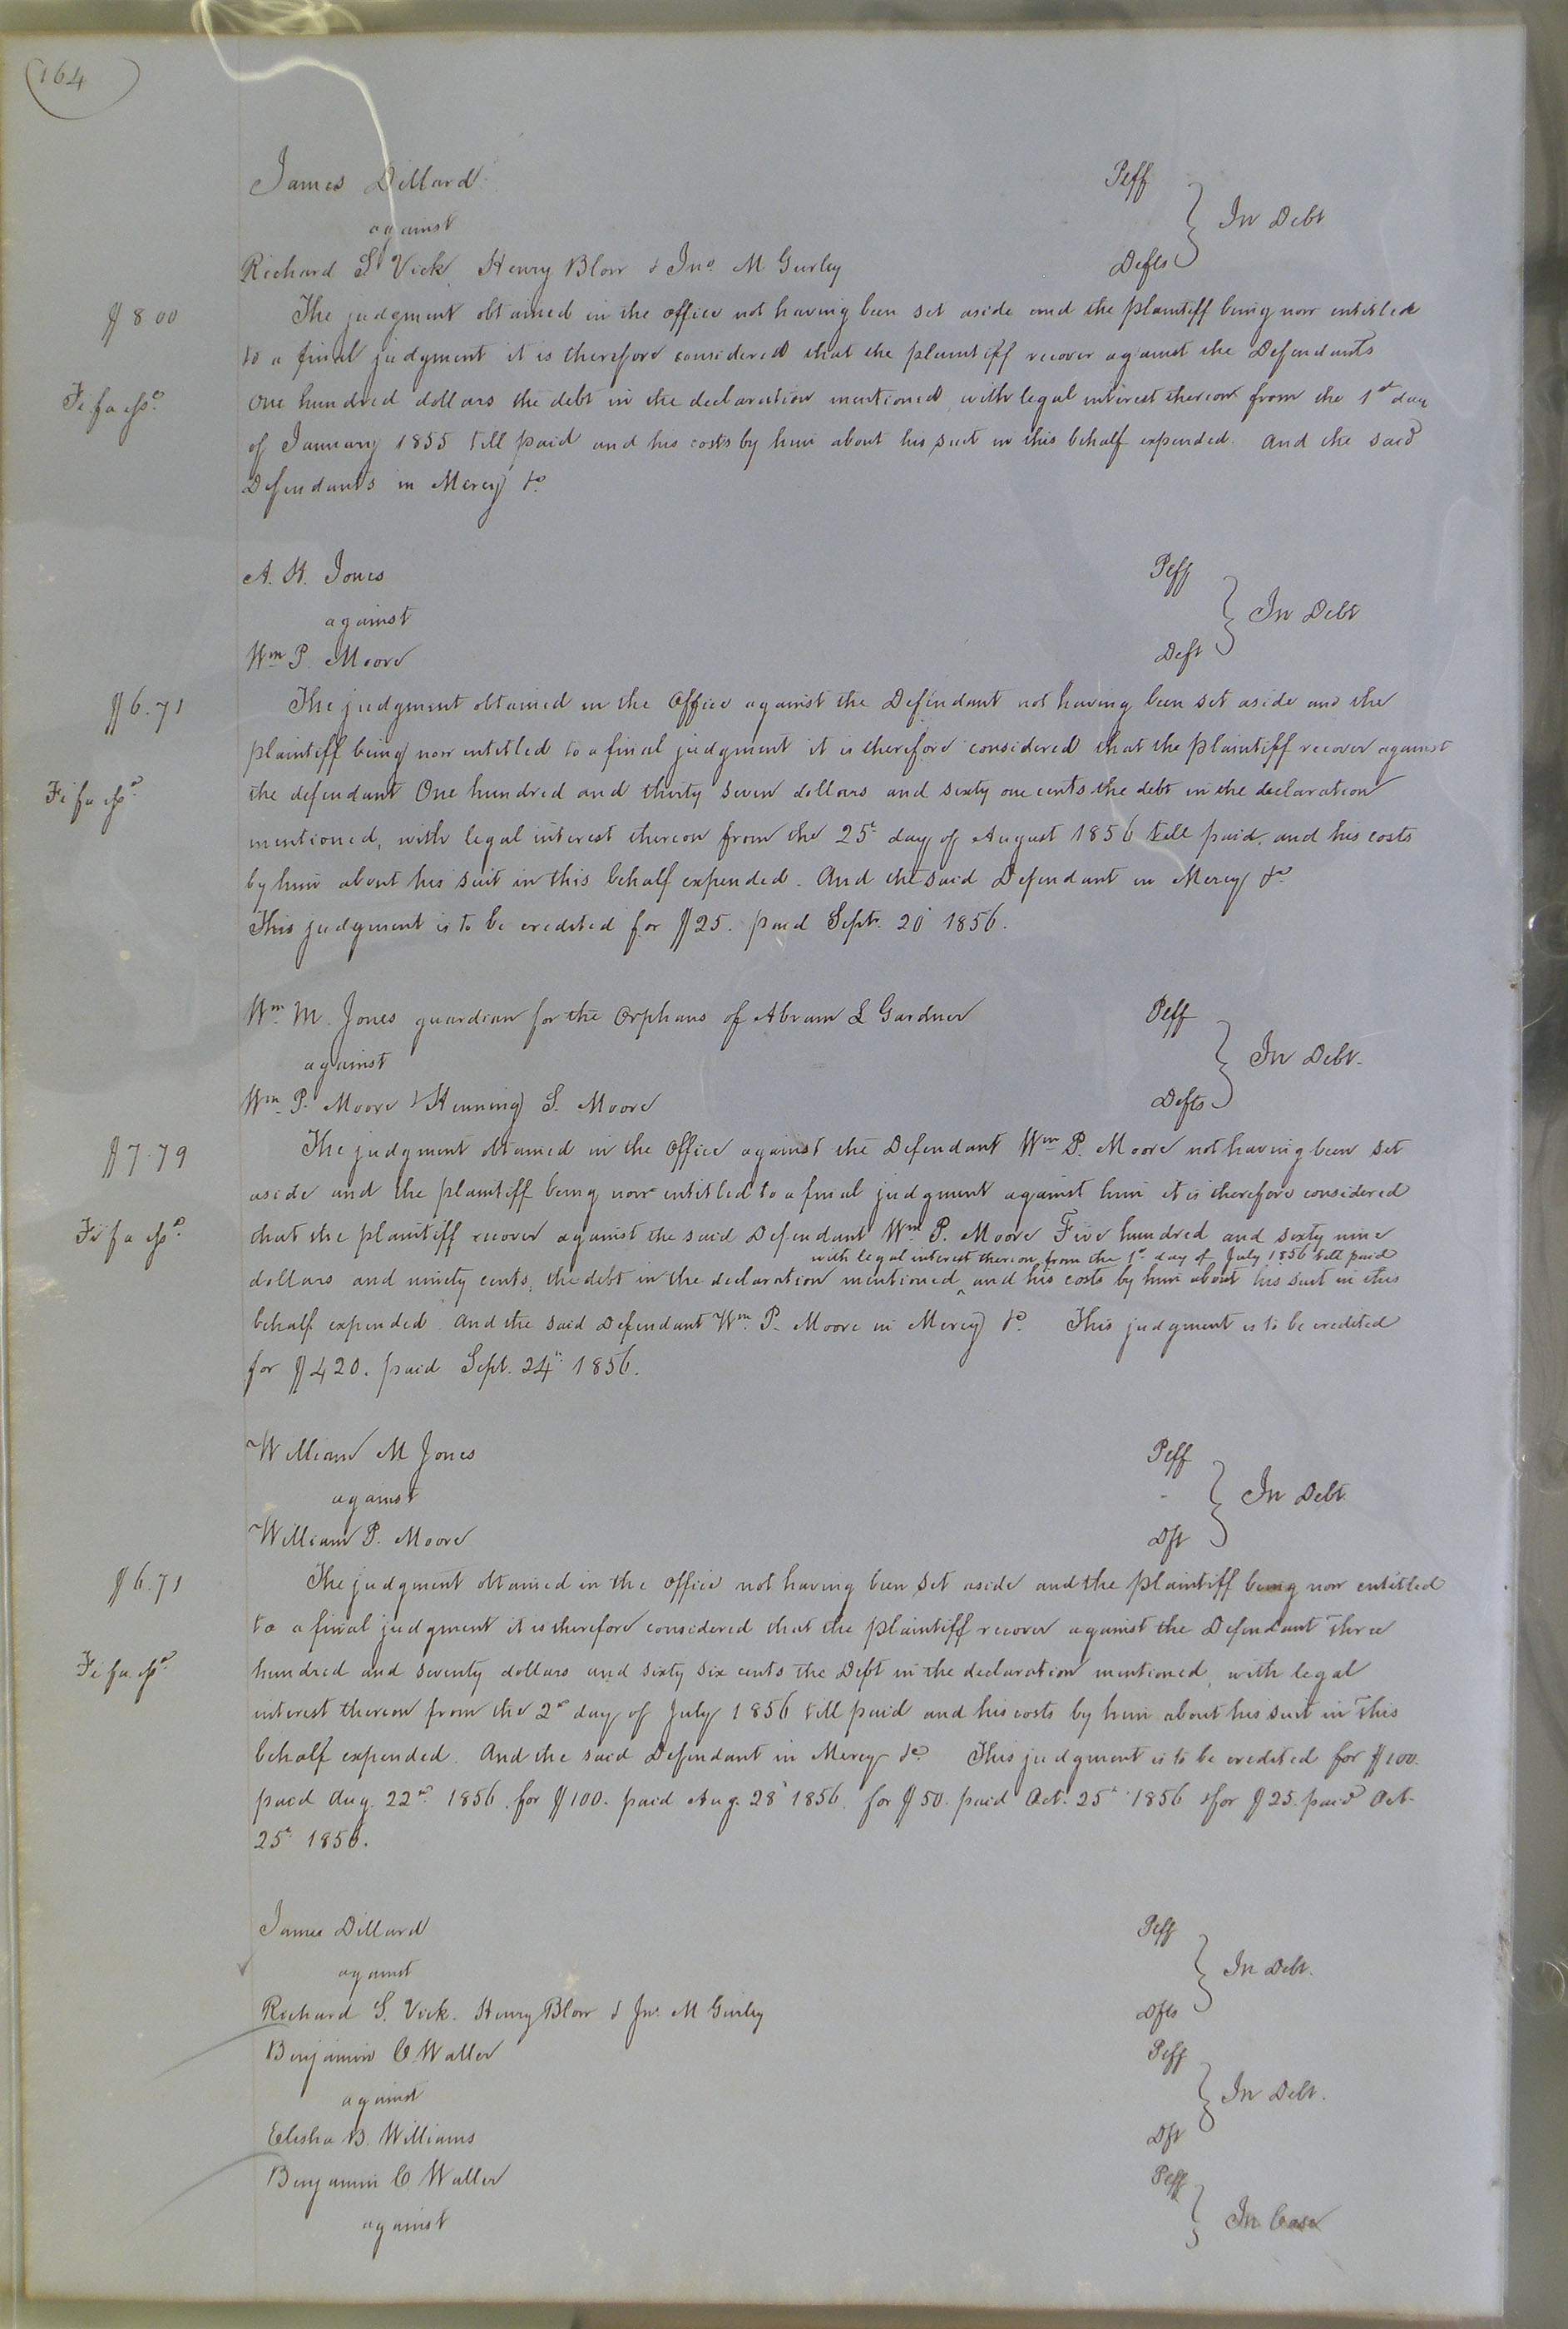 164
James Dillard Plff
against In Debt
Richard S. Vick, Henry Blow & Jno. M Gurley Defts
$8.00 The judgment obtained in the office not having been set aside and the plaintiff being now entitled
to a final judgment it is therefore considered that the plaintiff recover against the Defendants
Fi fa One hundred dollars the debt in the declaration mentioned, with legal interest thereon from the 1st day
of January 1855 till paid and his costs by him about his suit in this behalf expended. And the said
Defendants in Mercy &c
A. H. Jones Plff
against In Debt
Wm P. Moore Deft
$6.71 The judgment obtained in the Office against the Defendant not having been set aside and the
plaintiff being now entitled to a final judgment it is therefore considered that the plaintiff recover against
Fi fa the defendant One hundred and thirty seven dollars and sixty one cents the debt in the declaration
mentioned, with legal interest thereon from the 25t day of August 1856 till paid, and his costs
by him about his suit in this behalf expended. And the said Defendant in Mercy &c
This judgment is to be credited for $25. paid Sept. 20 1856.
Wm M. Jones guardian for the Orphans of Abram L Gardner Plff
against In Debt.
Wm P. Moore & Henning S. Moore Defts
$7.79 The judgment obtained in the Office against the Defendant Wm P. Moore not having been set
aside and the plaintiff being now entitled to a final judgment against him it is therefore considered
Fi fa that the plaintiff recover against the said Defendant Wm P. Moore Five hundred and sixty nine
with legal interest thereon from the 1st day of July 1856 till paid
dollars and ninety cents, the debt in the declaration mentioned ^ and his costs by him about his suit in this
behalf expended. And the said Defendant Wm P. Moore in Mercy &c. This judgment is to be credited
for $420. paid Sept. 24th 1856.
William M Jones Plff
against In Debt
William P. Moore Dft
$6.71 The judgment obtained in the office not having been set aside and the plaintiff being now entitled
to a final judgment it is therefore considered that the plaintiff recover against the Defendant Three
Fi fa hundred and seventy dollars and sixty six cents the Debt in the declaration mentioned, with legal
interest thereon from the 2nd day of July 1856 till paid and his costs by him about his suit in this
behalf expended. And the said Defendant in Mercy &c. This judgment is to be credited for $100.
paid Aug. 22nd 1856, for $100. paid Aug. 28 1856, for $50. paid Oct. 25t 1856 & for $25. paid Oct.
25t 1856.
James Dillard Plff
against In Debt.
Richard S. Vick. Henry Blow & Jno. M Gurley Dfts
Benjamin C. Waller Plff
against In Debt.
Elisha B. Williams Dft
Benjamin C. Waller Plff
against In Case